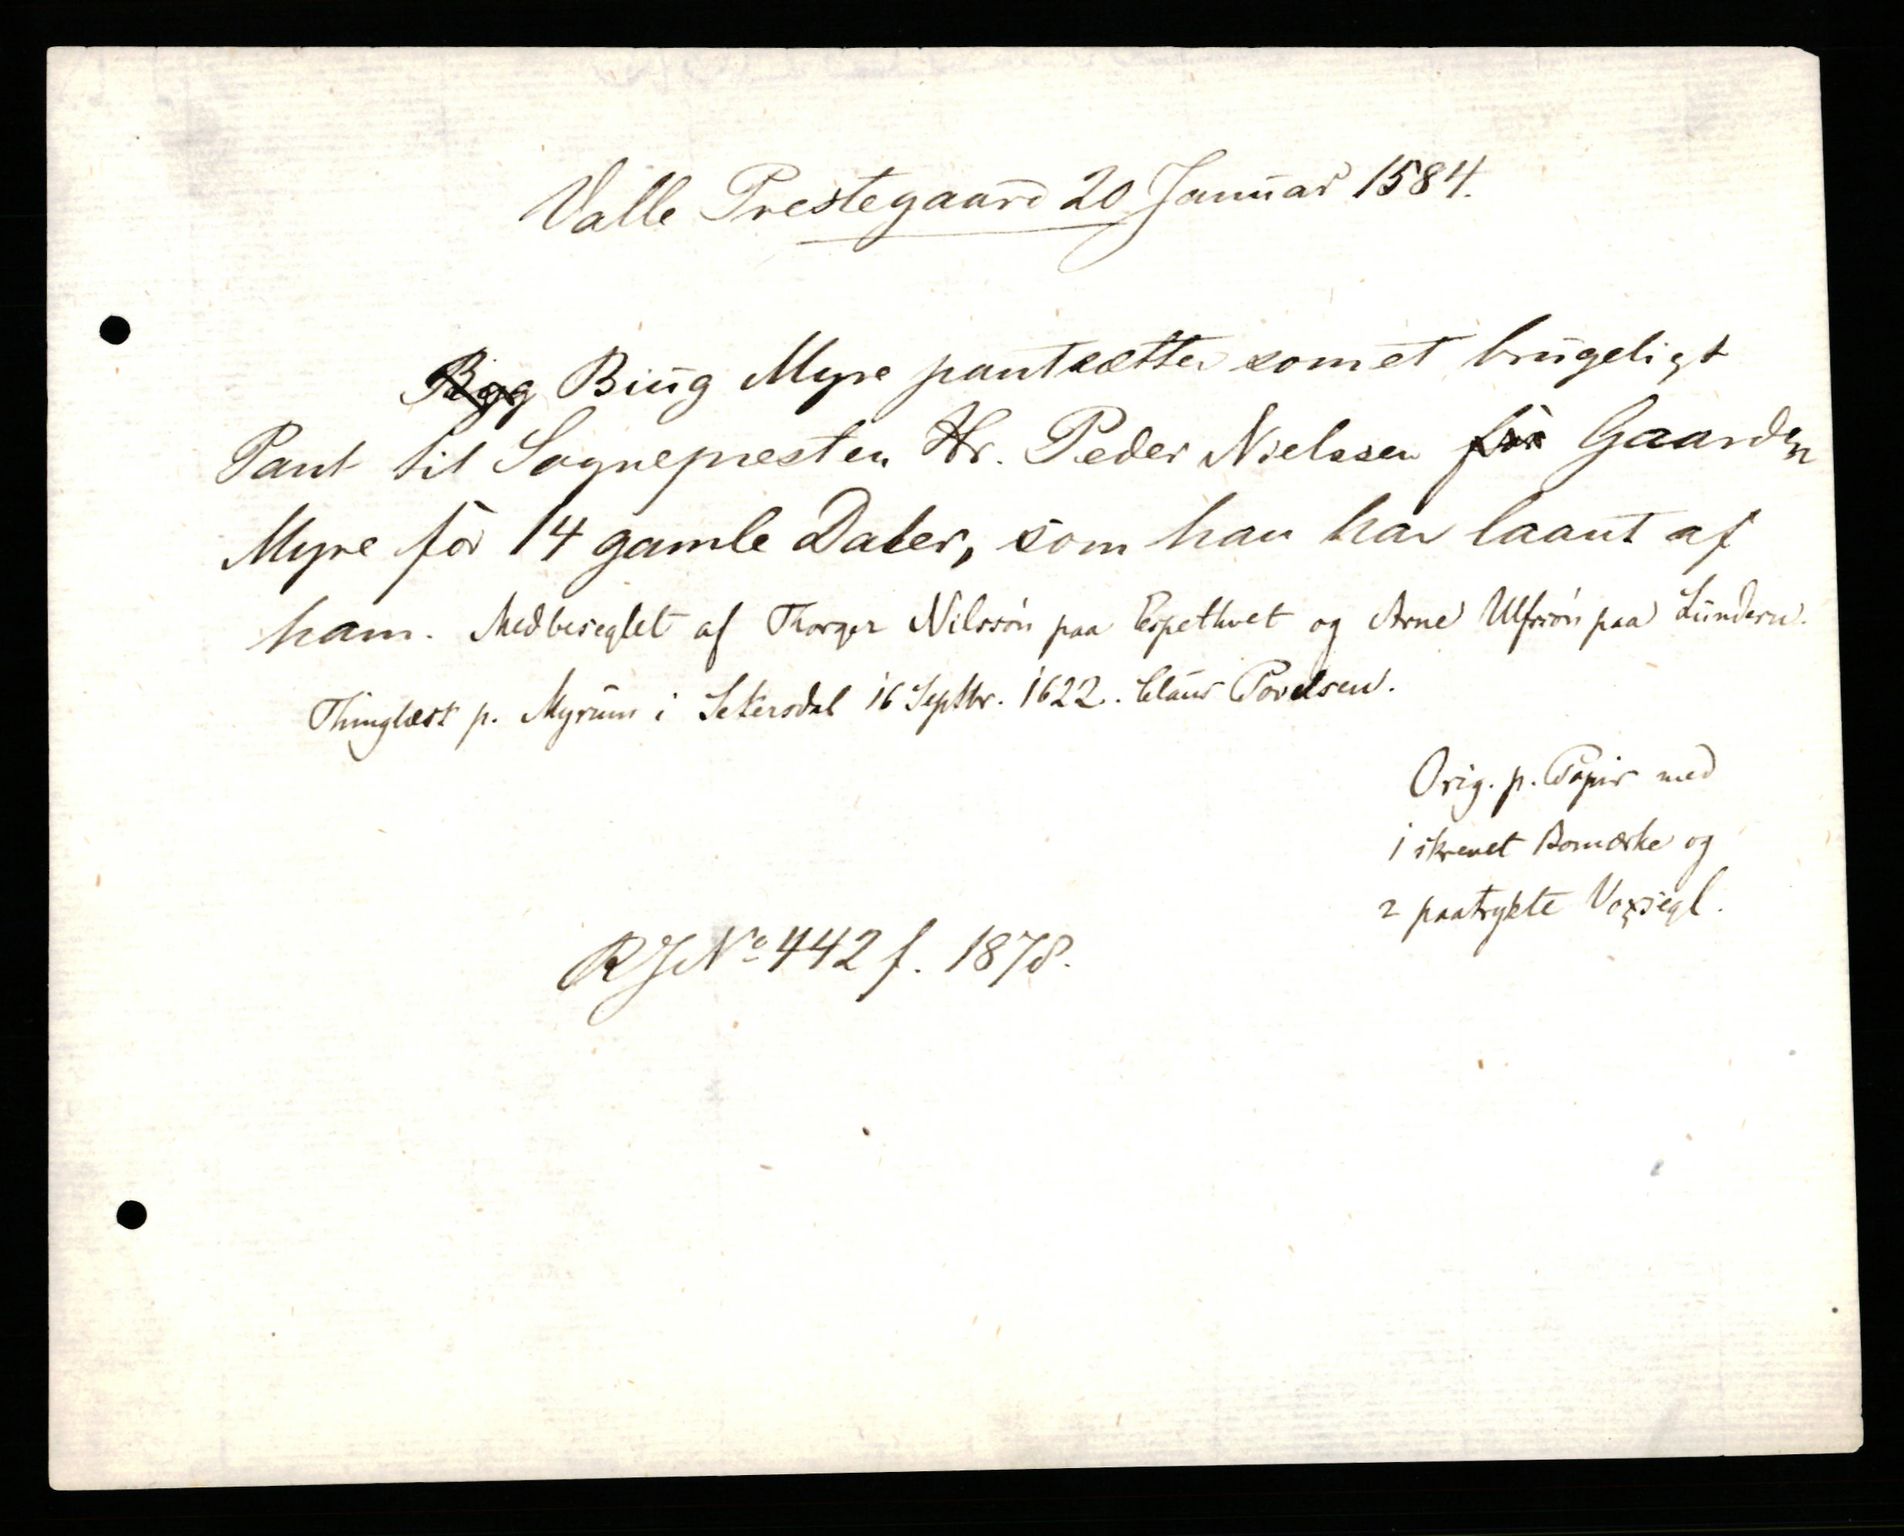 Valle Prestegaard 20 Januar 1584.
Byg Biug Myre pantsætter som et brugeligt
Pant til Sognepresten Hr. Peder Nielssen for Gaarden
Myre for 14 gamle Daler, som han har laant af
ham. Medbeseglet af Thorger Nilssøn paa Espethvet og Arne Ulfssøn paa Lundern.
Thinglæst p. Myrum i Setersdal 16 Septbr. 1622. Claus Povelsen.
Orig. p. Papir med
1 skrevet Bomærke og
2 paatrykte Voxsegl.
RJ No 442 f. 1878.